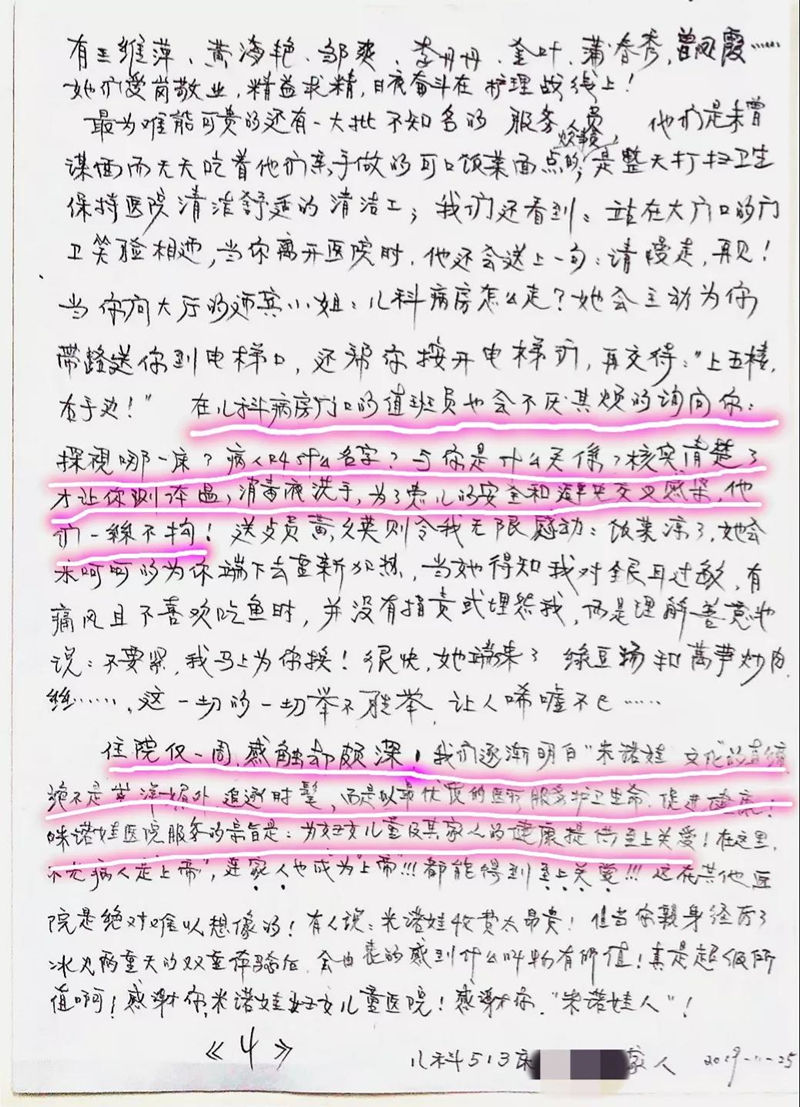 有王维萍、黄海艳、邹爽、李丹丹、金叶、蒲香秀,曾凤霞……
她们爱岗敬业,精益求精,日夜奋斗在护理战线上!
最为难能可贵的还有一大批不知名的服务人员 他们是未曾
谋面而天天吃着他们亲手做的可口饭菜面点的 是整天打扫卫生
保持医院清洁舒适的清洁工;我们还看到:站在大门口的门
卫笑脸相迎,当你离开医院时,他还会送上一句:请慢走,再见!
当你问大厅的迎宾小姐:儿科病房怎么走?她会主动为你
带路送你到电梯口,还帮你按开电梯门,再交待:"上五楼,
右手边!" 在儿科病房门口的值班员也会不厌其烦的询问你:
探视哪一床?病人叫什么名字?与你是什么关系?核实清楚了
才让你测体温,消毒液洗手,为了患儿的安全和避免交叉感染,他
们一丝不拘!送点员黄久英则令我无限感动:饭菜凉了,她会
乐呵呵的为你端下去重新加热,当她得知我对银耳过敏,有
痛风且不喜欢吃鱼时,并没有指责或埋怨我,而是理解善意地
说:不要紧,我马上为你换!很快,她端来了 绿豆汤和莴笋炒肉
丝……,这一切的一切举不胜举,让人唏嘘不已……
住院仅一周,感触却颇深!我们逐渐明白"米诺娃 文化"的真谛
绝不是崇洋媚外 追逐时髦,而是以最优质的医疗服务护卫生命,促进健康;
咪诺娃医院服务的宗旨是:为妇女儿童及其家人的健康提供至上关爱!在这里,
不光病人是上帝",连家人也成为"上帝"!!!都能得到至上关爱!!!这在其他医
院是绝对难以想像的!有人说:米诺娃收费太昂贵!但当你亲身经历了
冰火两重天的双重体验后,会由衷的感到什么叫物有所值!真是超级所
值啊!感谢你,米诺娃妇女儿童医院!感谢你,"米诺娃人"!
《4》
儿科513床 家人 2019-11-25